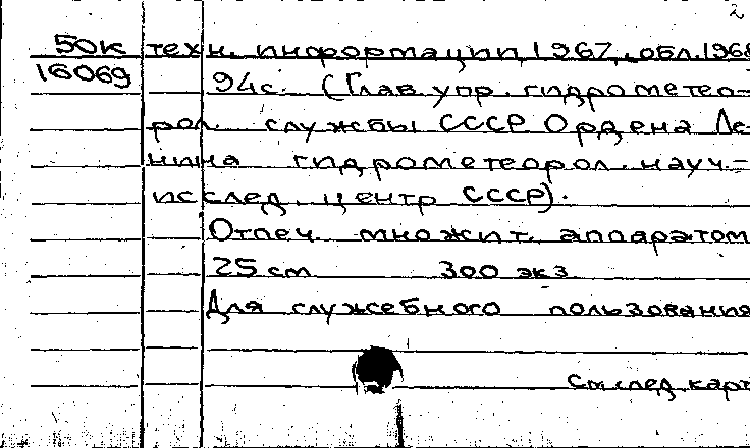 2
50к техн. информации, 1967, обл. 1968
16069 94с. (Глав упр. гидрометео-
рол. службы СССР Ордена Ле-
нина гидрометеорол. науч.-
исслед. центр СССР).
Отпеч. множит. аппаратом
25 см 300 экз.
Для служебного пользования
См след карт